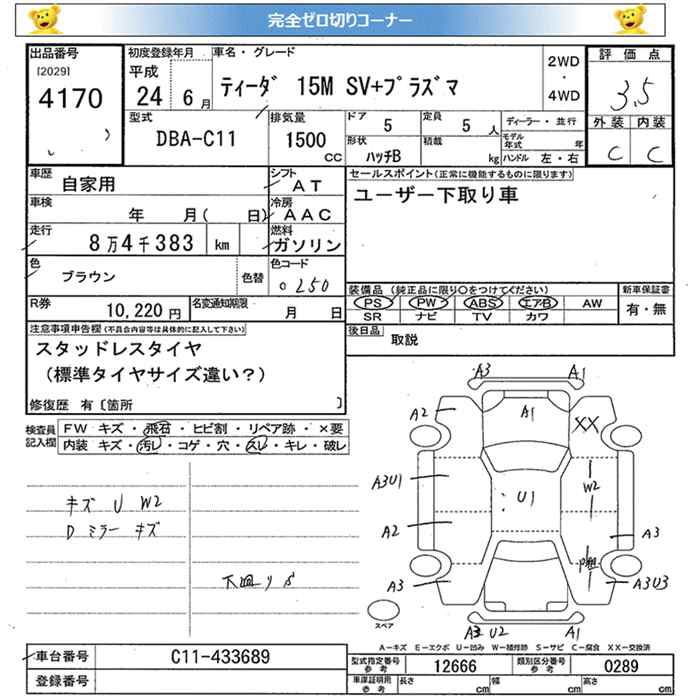 完全ゼロ切りコーナー
出品番号 初度登録年月 車名・グレード 評価点
[2029] 4170
平成 24 6月
ティーダ 15M SV+プラズマ
2WD ・ 4WD
3.5
型式 DBA-C11
排気量 1500 CC
ドア 5
定員 5 人
ディーラー・並行
形状 ハッチB
積載 kg
モデル年式 年
ハンドル 左・右
外装 内装
C C
車歴 自家用
シフト AT
セールスポイント(正常に機能するものに限ります)
ユーザー下取り車
車検 年 月( 日)
冷房 AAC
走行 8万4千383 km
燃料 ガソリン
色 ブラウン 色替
色コード 0250
装備品 (純正品に限り〇をつけてください) 新車保証書
PS PW ABS エアB AW 有・無
SR ナビ TV カワ
R券 10,220円
名変通知期限 月 日
後日品 取説
注意事項申告欄(不具合内容等は具体的に記入して下さい)
スタッドレスタイヤ
(標準タイヤサイズ違い?)
修復歴 有〔箇所 〕
検査員記入欄
FW キズ・飛石・ヒビ割・リペア跡・×要
内装 キズ・汚レ・コゲ・穴・スレ・キレ・破レ
キズ U W2
D ミラー キズ
下廻りS
A3 A1
A2 A1 XX
A3U1 U1 W2
A2 A3
A3 A3U3
A3 U2 A1
スペア
A-キズ E-エクボ U-凹み W-補修跡 S-サビ C-腐食 XX-交換済
車台番号 C11-433689
型式指定番号 参考 12666
類別区分番号 参考 0289
登録番号
車庫証明用 参考 長さ cm 幅 cm 高さ cm